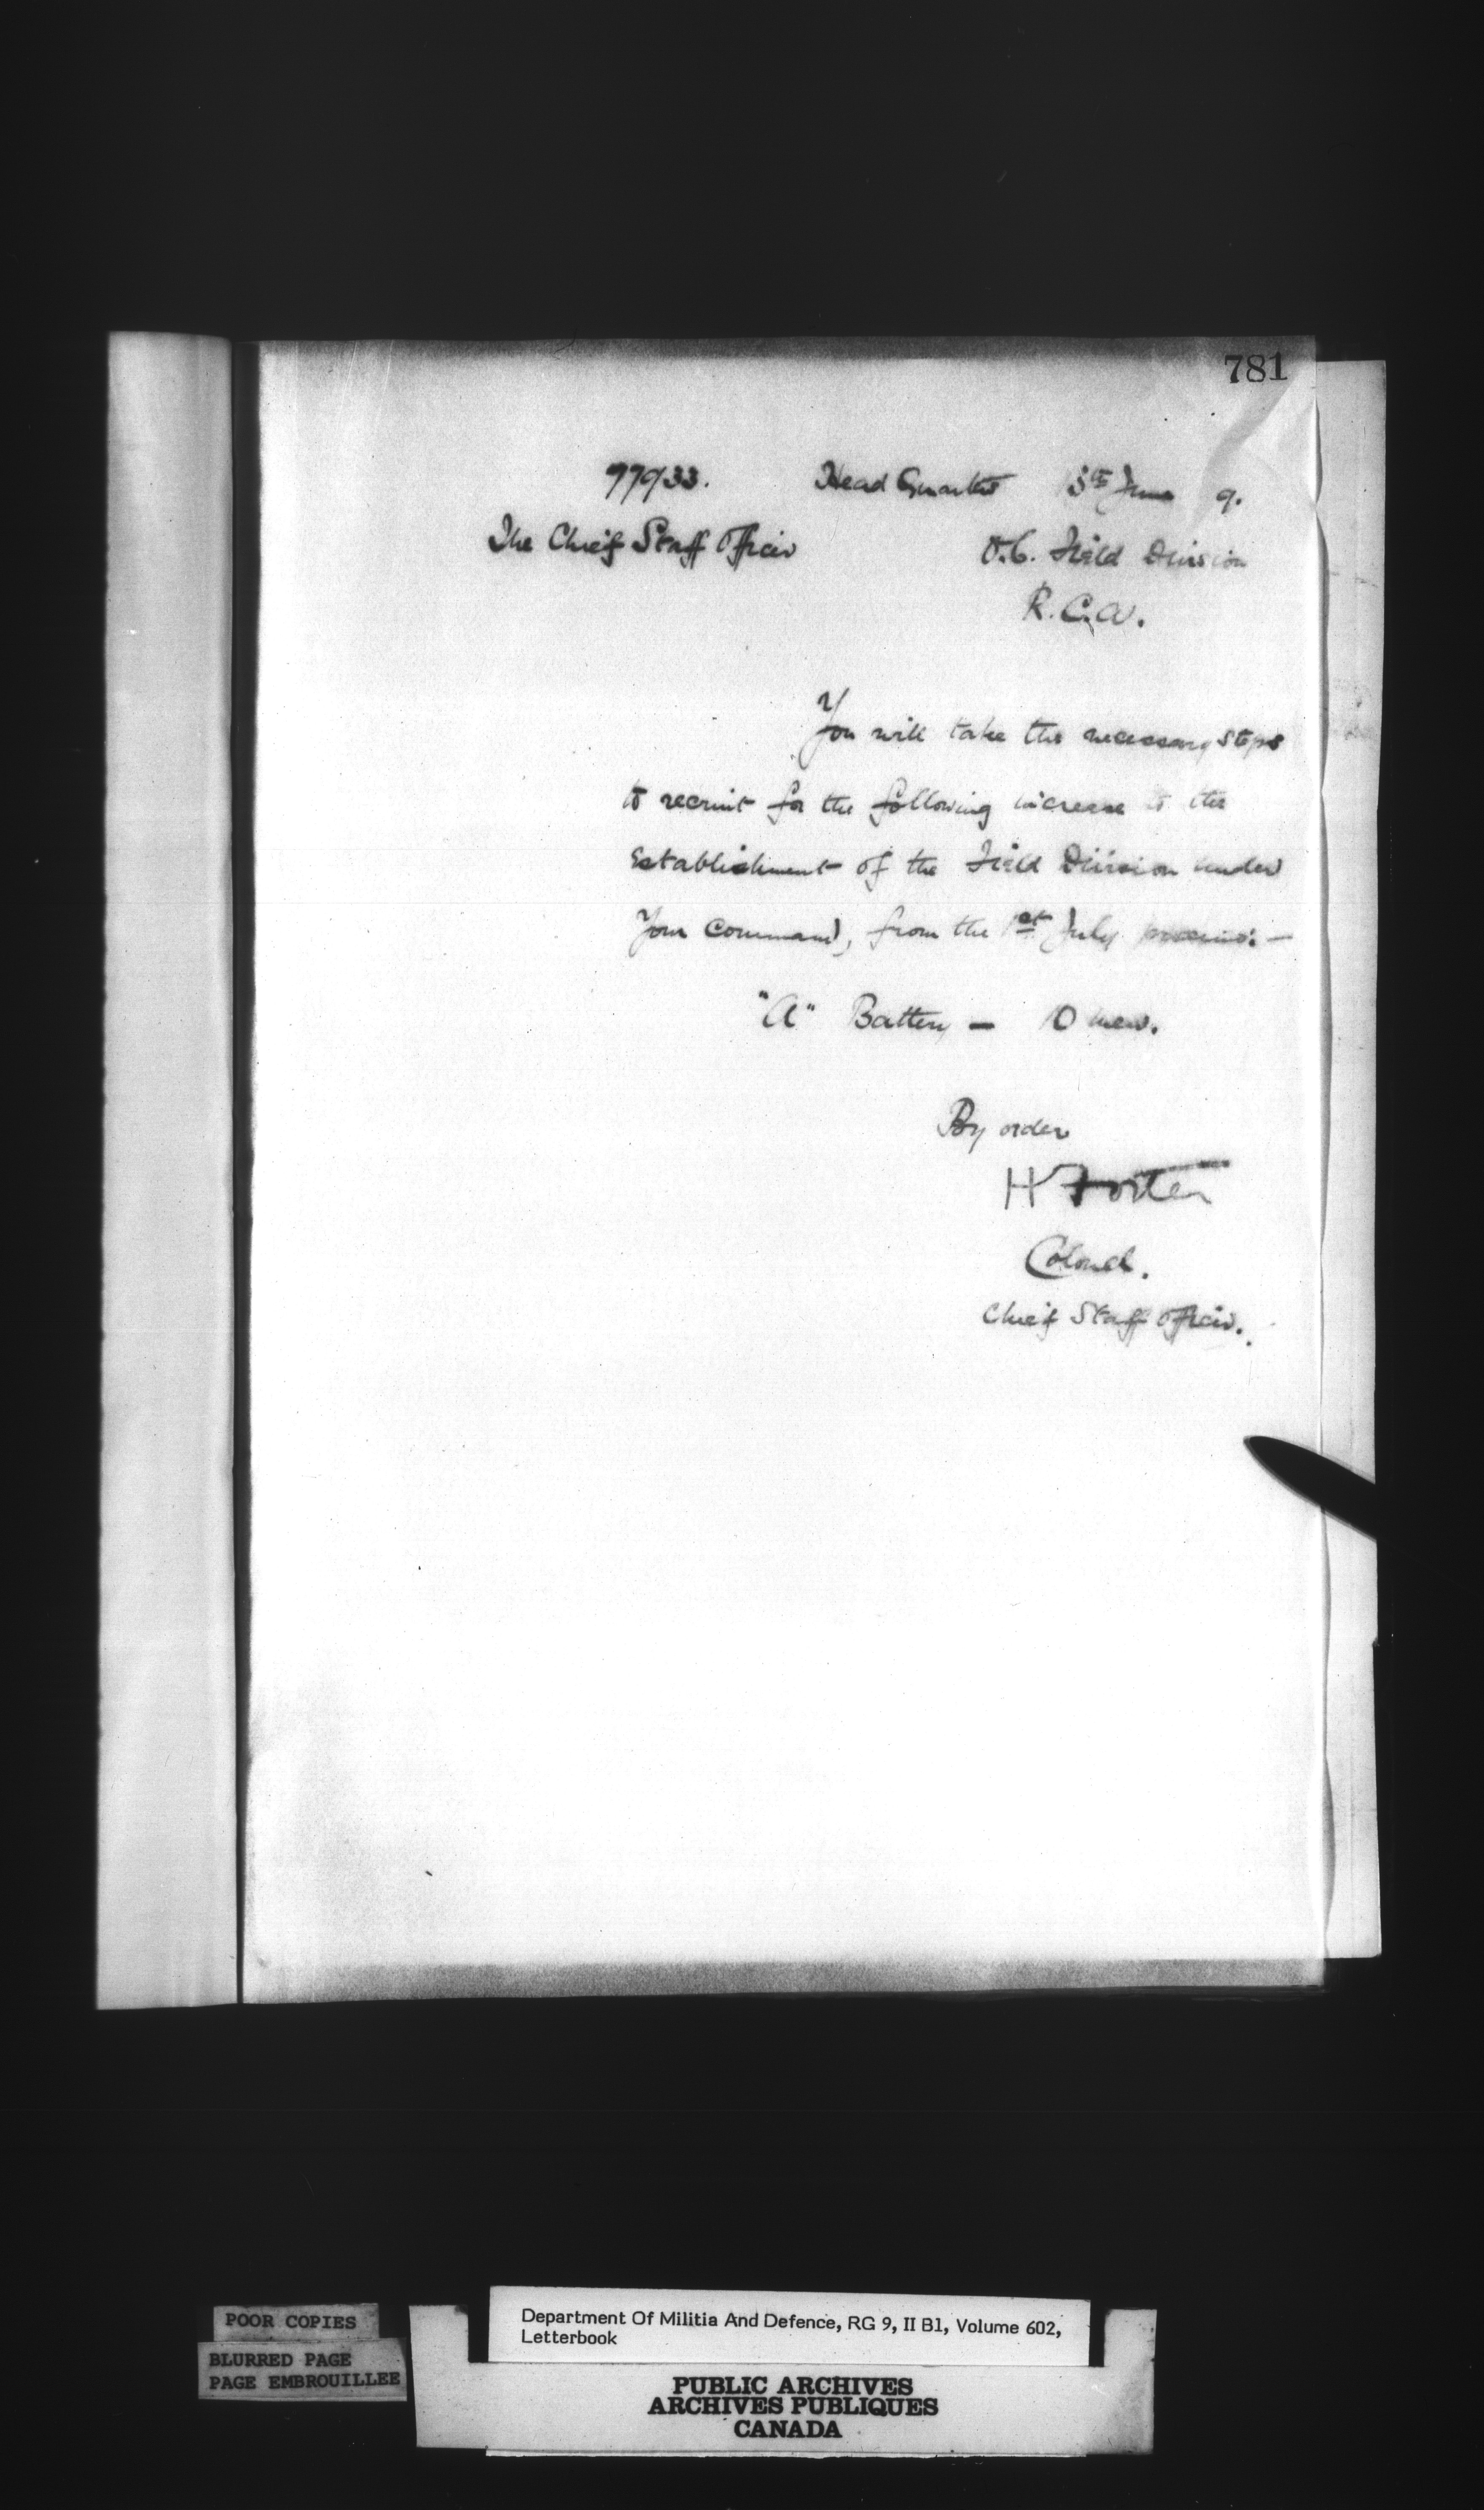 781
77933. Head Quarters 13th June 9.
The Chief Staff Officer
O.C. Field Division
R.C.A.
You will take the necessary steps
to recruit for the following increase to the
Establishment of the Field Division under
your command, from the 1st July proximo:—
"A" Battery — 10 men.
By order
H Foster
Colonel.
Chief Staff Officer.
POOR COPIES
BLURRED PAGE
PAGE EMBROUILLEE
Department Of Militia And Defence, RG 9, II B1, Volume 602,
Letterbook
PUBLIC ARCHIVES
ARCHIVES PUBLIQUES
CANADA